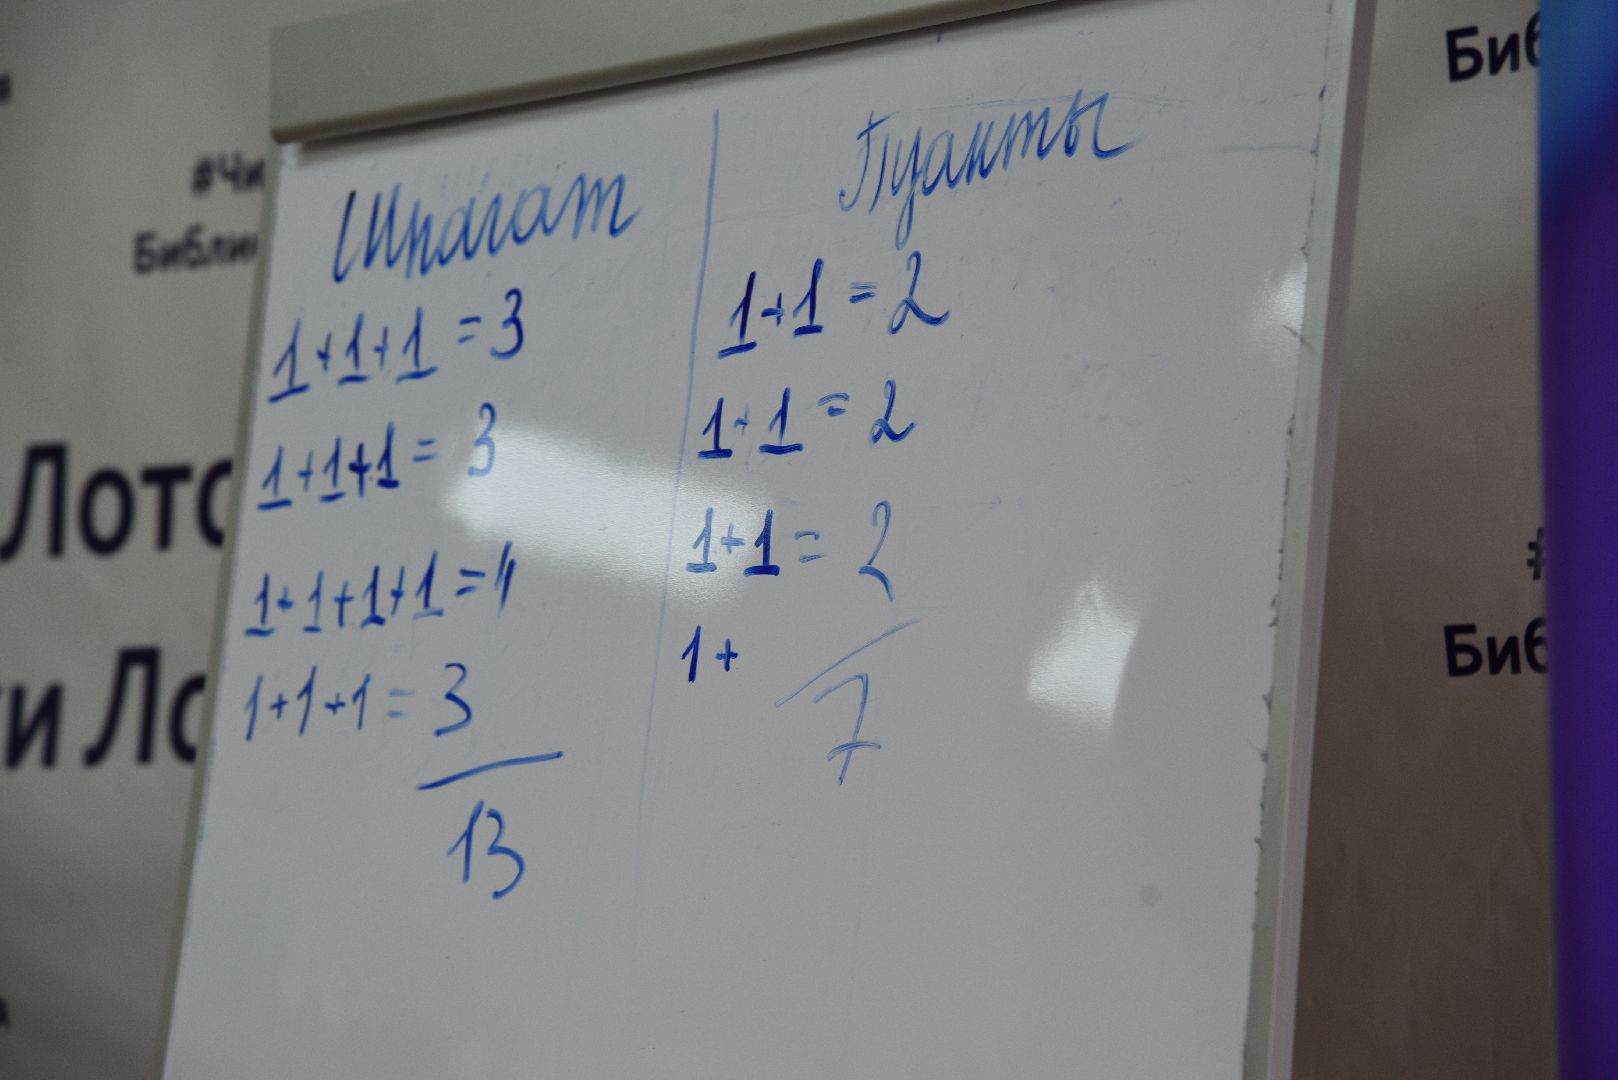 Шпагат
1+1+1=3
1+1+1=3
1+1+1+1=4
1+1+1=3
13
Пуанты
1+1=2
1+1=2
1+1=2
1+
7
#Чи
Библи
Лото
ки Ло
Биб
#
Биб